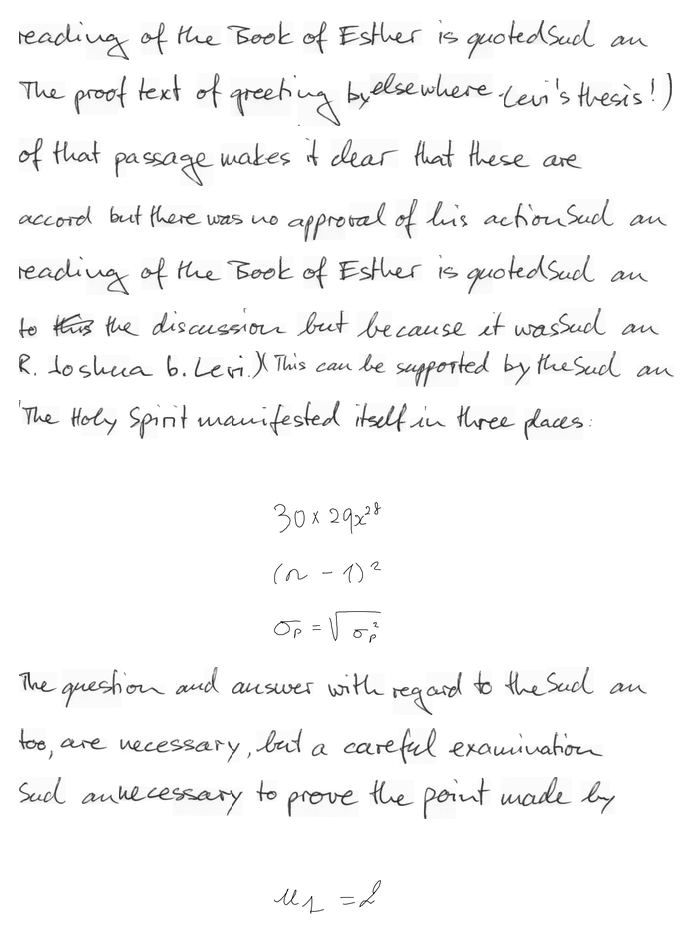 reading of the Book of Esther is quoted Sud an
The proof text of greeting by elsewhere. Levi's thesis!)
of that passage makes it clear that these are
accord but there was no approval of his action Sud an
reading of the Book of Esther is quoted Sud an
to this the discussion but because it was Sud an
R. Joshua b. Levi.)( This can be supported by the Sud an
'The Holy Spirit manifested itself in three places:
30 × 29x^{28}
(n - 1)^2
σ_p = √σ_p^2
The question and answer with regard to the Sud an
too, are necessary, but a careful examination
Sud an necessary to prove the point made by
u_1 = 2